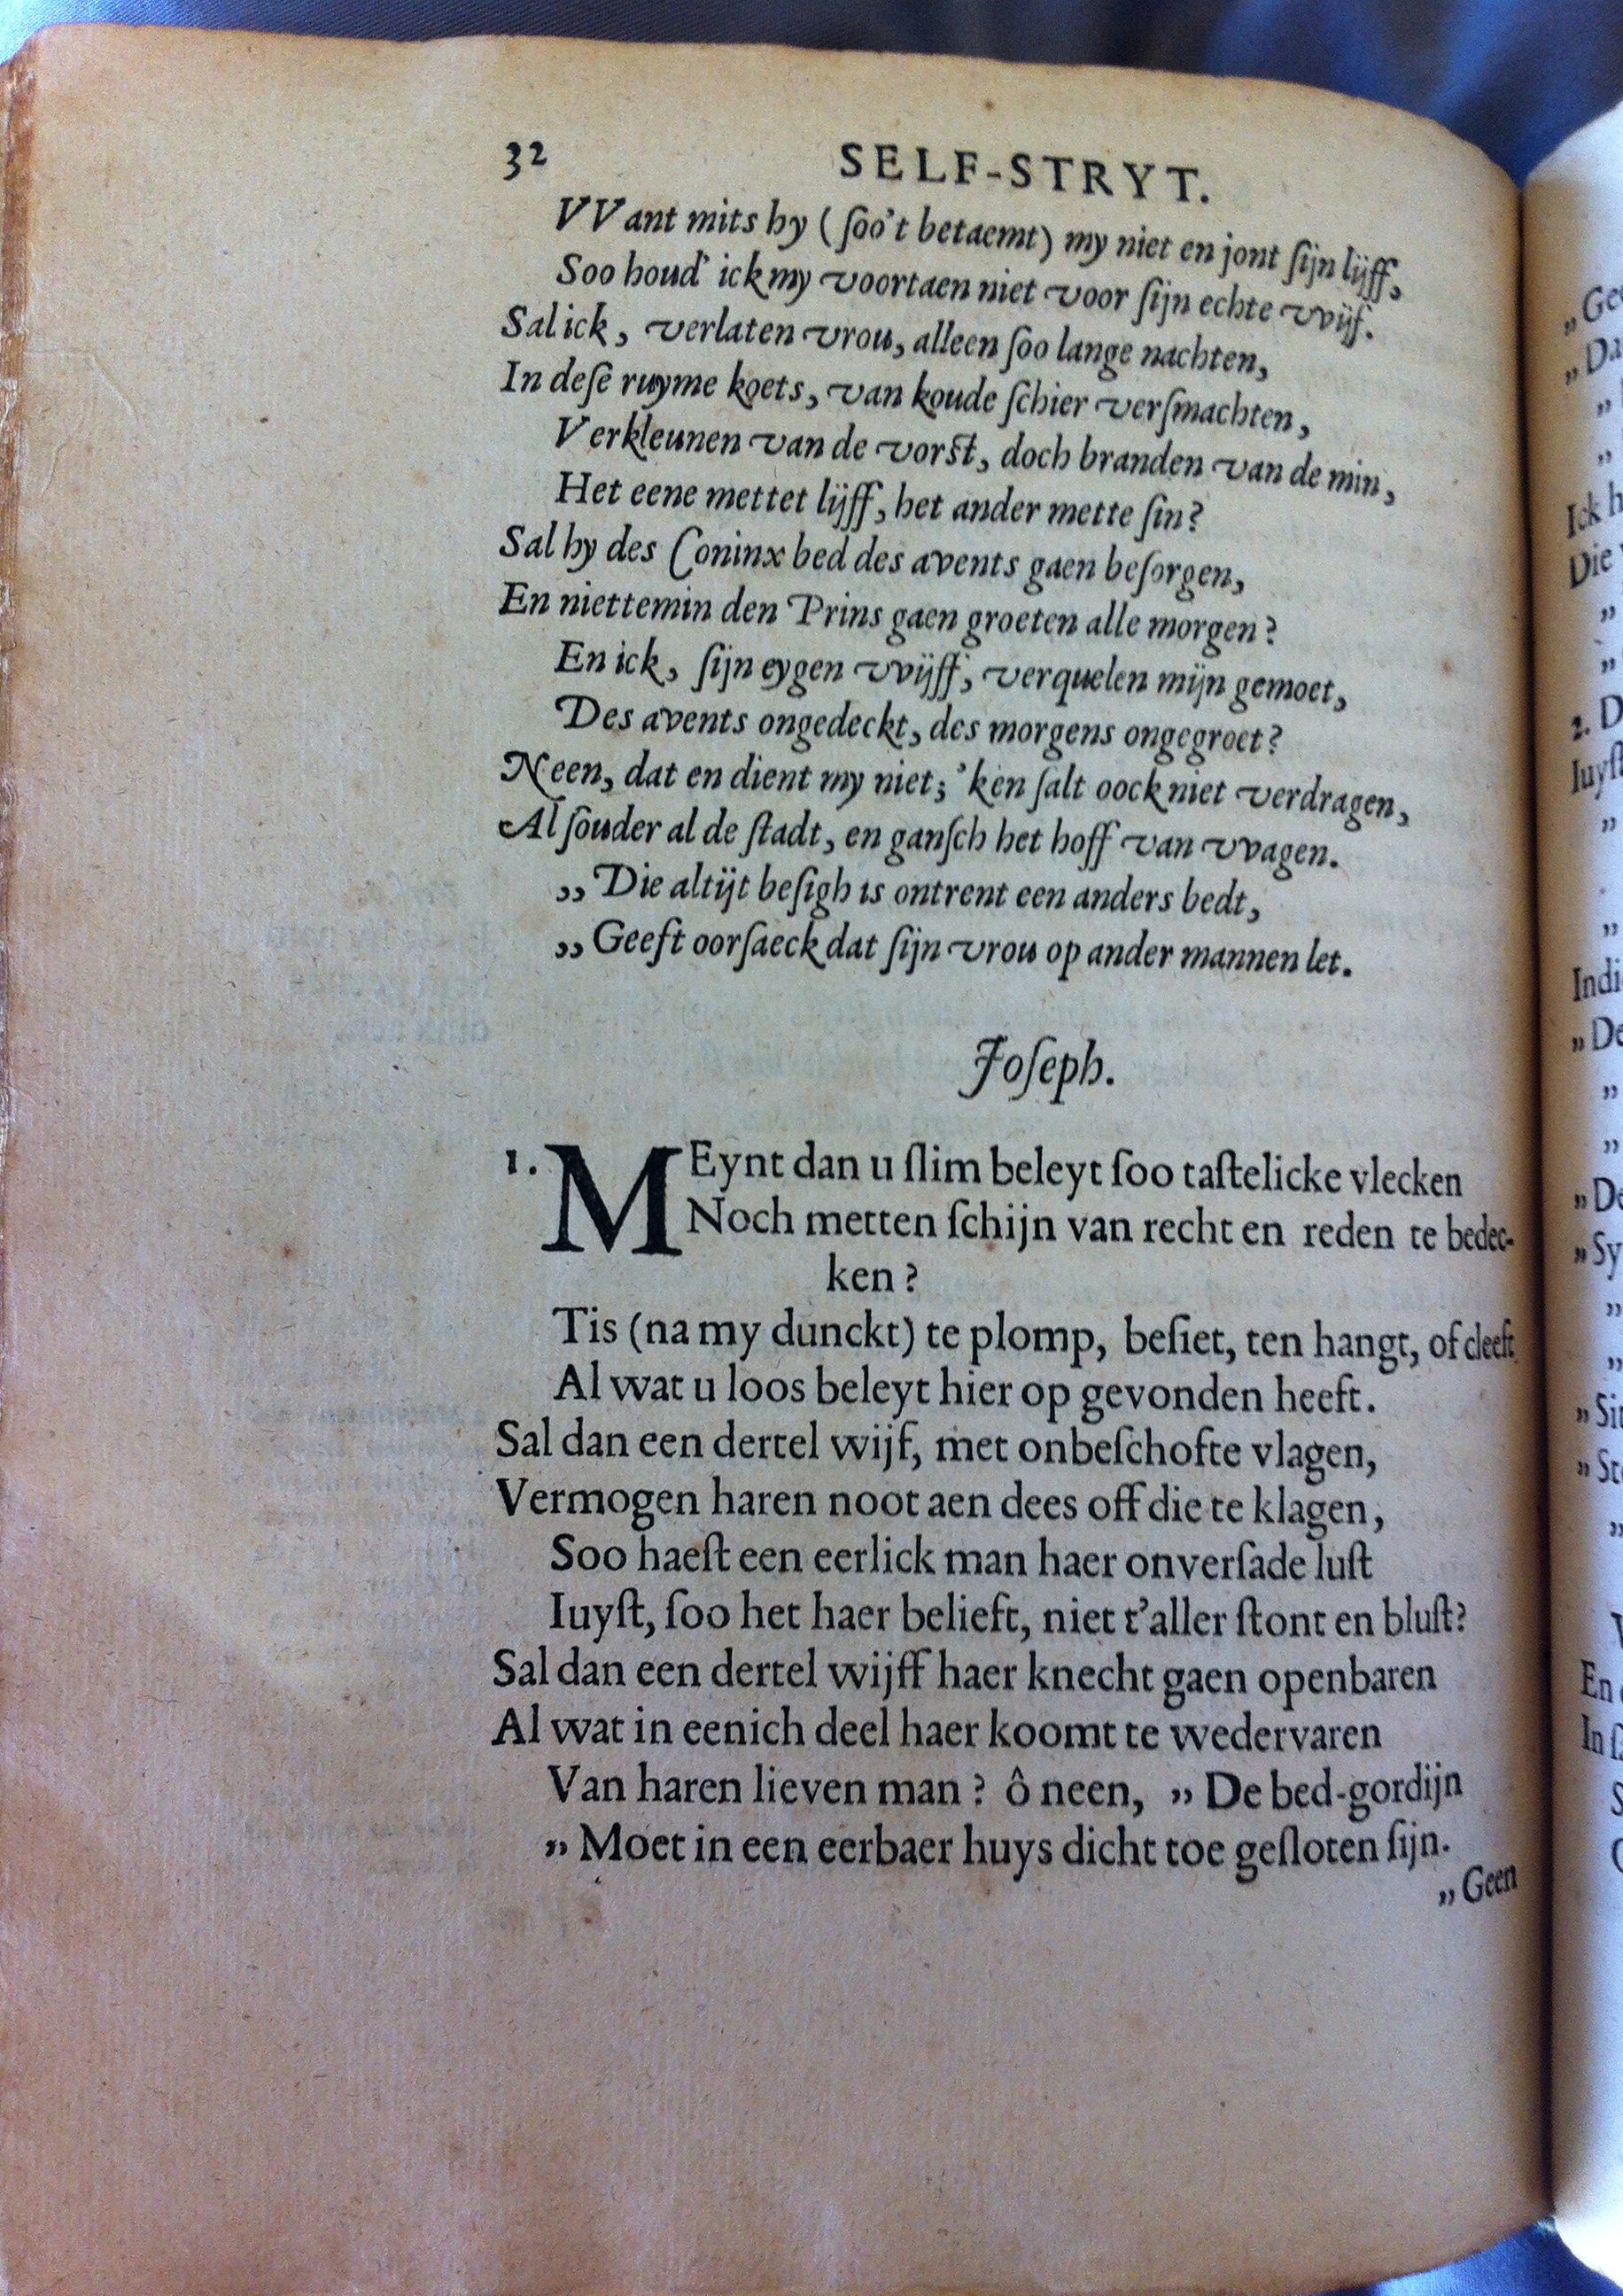 32 SELF-STRYT.
VVant mits hy (ſoo't betaemt) my niet en jont ſijn lijff,
Soo houd' ick my voortaen niet voor ſijn echte vvijf.
Sal ick, verlaten vrou, alleen ſoo lange nachten,
In deſe ruyme koets, van koude ſchier verſmachten,
Verkleunen van de vorſt, doch branden van de min,
Het eene mettet lijff, het ander mette ſin?
Sal hy des Coninx bed des avents gaen beſorgen,
En niettemin den Prins gaen groeten alle morgen?
En ick, ſijn eygen vvijff, verquelen mijn gemoet,
Des avents ongedeckt, des morgens ongegroet?
Neen, dat en dient my niet; 'ken ſalt oock niet verdragen,
Al ſouder al de ſtadt, en ganſch het hoff van vvagen.
„Die altijt beſigh is ontrent een anders bedt,
„Geeft oorſaeck dat ſijn vrou op ander mannen let.
Joſeph.
1. MEynt dan u ſlim beleyt ſoo taſtelicke vlecken
Noch metten ſchijn van recht en reden te bedec-
ken?
Tis (na my dunckt) te plomp, beſiet, ten hangt, of cleeft
Al wat u loos beleyt hier op gevonden heeft.
Sal dan een dertel wijf, met onbeſchofte vlagen,
Vermogen haren noot aen dees off die te klagen,
Soo haeſt een eerlick man haer onverſade luſt
Iuyſt, ſoo het haer belieft, niet t'aller ſtont en bluſt?
Sal dan een dertel wijff haer knecht gaen openbaren
Al wat in eenich deel haer koomt te wedervaren
Van haren lieven man? ô neen, „ De bed-gordijn
„ Moet in een eerbaer huys dicht toe geſloten ſijn.
„Geen